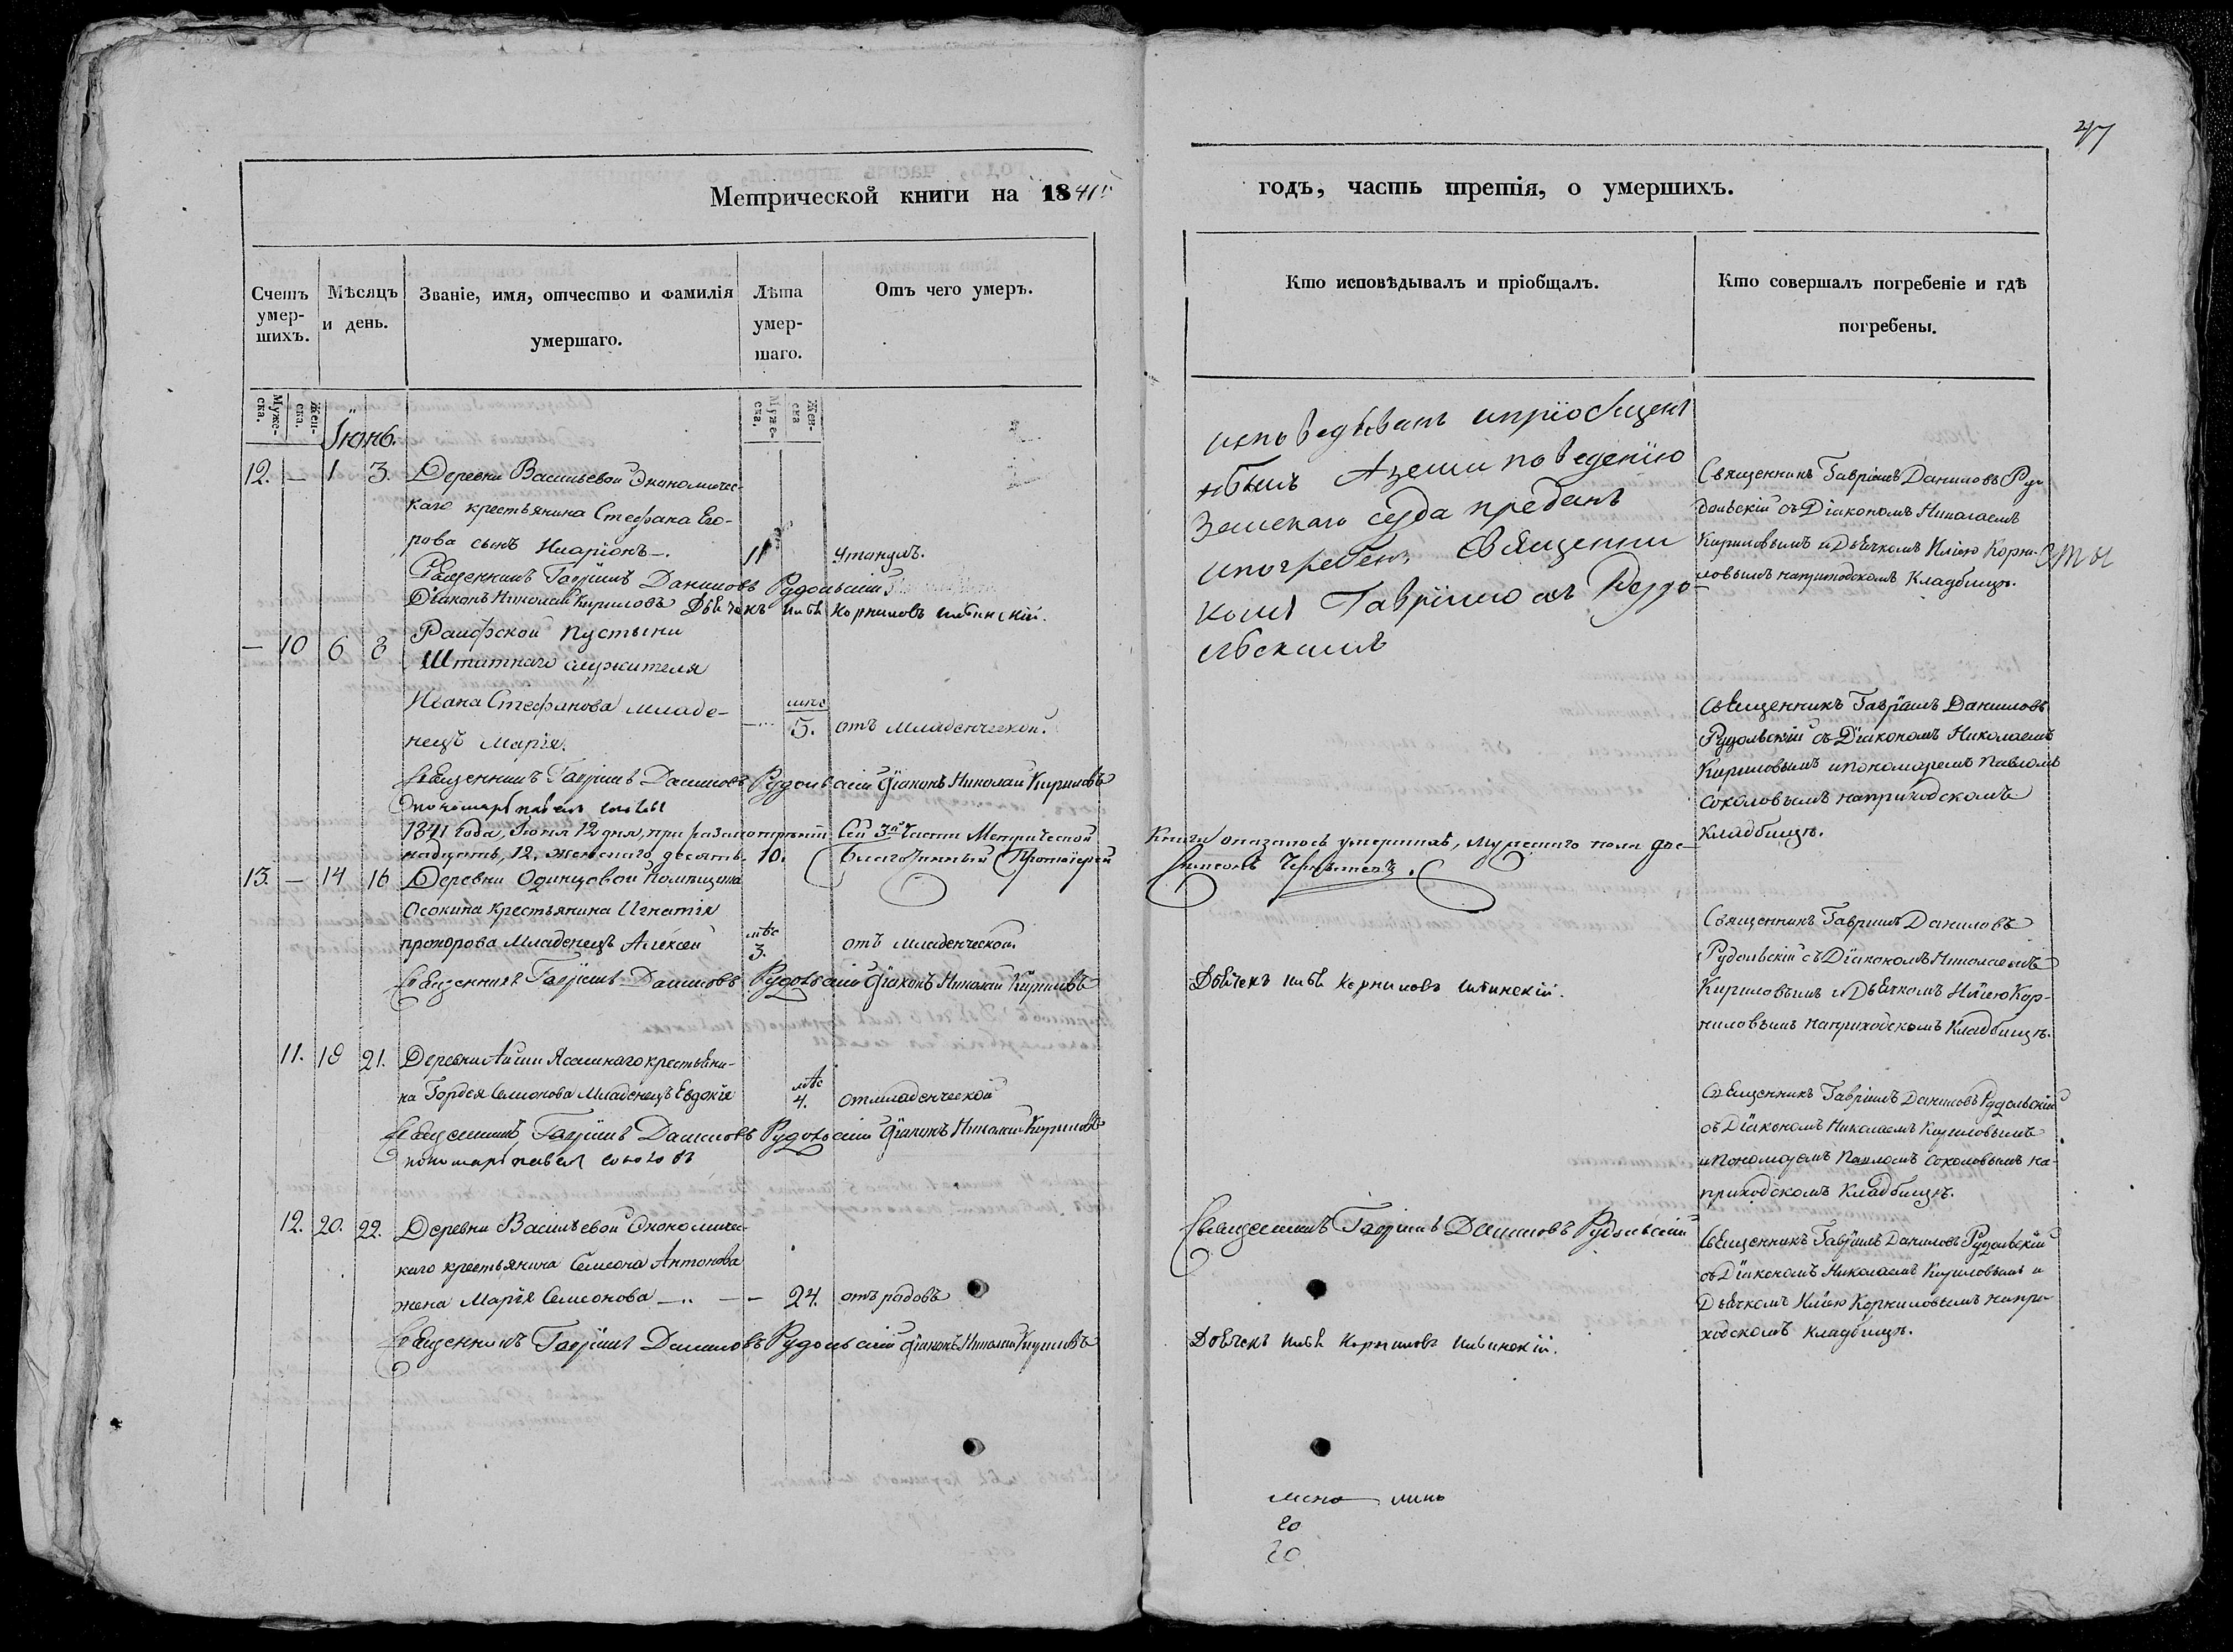 47
Метрической книги на 1841й
годъ, часть третія, о умершихъ.
Счетъ умер-шихъ.
Мѣсяцъ и день.
Званіе, имя, отчество и фамилія умершаго.
Лѣта умер-шаго.
Отъ чего умеръ.
Кто исповѣдывалъ и пріобщалъ.
Кто совершалъ погребеніе и гдѣ погребены.
Муже-ска.
Жен-ска.
Муже-ска,
Жен-ска
Іюнь.
12. — 1 3. Деревни Васильевой Экономичес-
каго крестьянина Стефана Его-
рова сынъ Иларіонъ —. 11 утонулъ.
Священникъ Гавріилъ Даниловъ Рудольскій
Діаконъ Николай Кириловъ Дьячекъ Илья Корниловъ Ильинскій.
исповедыванъ и пріобщенъ
небылъ А земли по веденію
Земскаго суда преданъ
и погребенъ Священни
комъ Гавріиломъ Рудо-
льскимъ
Священникъ Гавріилъ Даниловъ Рудо-
дольскій съ Діакономъ Николаемъ
Кириловымъ и Дьячкомъ Иліею Корни-
ловымъ наприходскомъ Кладбищѣ.
— 10 6 8 Раифской пустыни
Штатнаго служителя
Ивана Стефанова младе-
нецъ Марія. мпс 5. отъ младенческой.
Священникъ Гавріилъ Даниловъ Рудольскій Діаконъ Николай Кириловъ
пономарь павелъ
Священникъ Гавріилъ Даниловъ
Рудольскій съ Діакономъ Николаемъ
Кириловымъ и пономаремъ Павломъ
Соколовымъ наприходскомъ
кладбищѣ.
1841 года, Іюня 12 дня, при разсмотрѣніи Сей 3й части Метрической Книги оказалось умершихъ, мужескаго пола две-
надцать, 12, женскаго десять. 10. Благочинный Протоіерей
13. — 14 16 Деревни Одинцовой помещика
Осокина крестьянина Игнатія
прохорова младенецъ Алексей мѣс 3. отъ младенческой.
Священникъ Гавріилъ Даниловъ Рудольскій Діаконъ Николай Кириловъ Дьячекъ Илья Корниловъ Ильинскій.
Священникъ Гавріилъ Даниловъ
Рудольскій съ Діакономъ Николаемъ
Кириловымъ и Дьячкомъ Иліею Кор-
ниловымъ наприходскомъ Кладбищѣ.
11. 18 21. Деревни Ясашнаго крестьяни-
на Гордея Семионова младенецъ Евдокія мѣс 4. отмладенческой
Священникъ Гавріилъ Даниловъ Рудольскій Діаконъ Николай Кириловъ
пономарь павелъ соколовъ
Священникъ Гавріилъ Даниловъ Рудольскій
съ Діакономъ Николаемъ Кириловымъ
и Пономаремъ Павломъ Соколовымъ на-
приходскомъ Кладбищѣ.
12. 20. 22. Деревни Васильевой Экономичес-
каго крестьянина Семиона Антонова
жена Марія Семионова — 24. отъ родовъ
Священникъ Гавріилъ Даниловъ Рудольскій Діаконъ Николай Кириловъ
Священникъ Гавріилъ Даниловъ Рудольскій
Дьячекъ Илья Корниловъ Ильинскій.
Священникъ Гавріилъ Даниловъ Рудольскій
съ Діакономъ Николаемъ Кириловымъ и
Дьячкомъ Иліею Корниловымъ напри-
ходскомъ кладбищѣ.
20
20